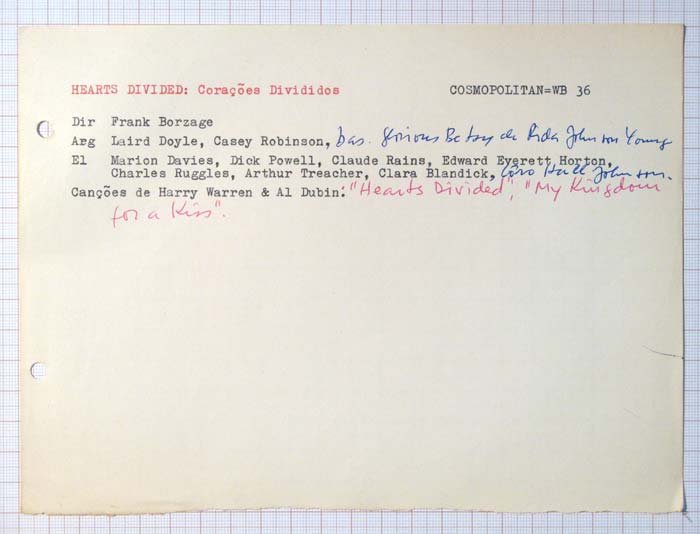 HEARTS DIVIDED: Corações Divididos COSMOPOLITAN=WB 36
Dir Frank Borzage
Arg Laird Doyle, Casey Robinson, bas. Glorious Betsy de Rida Johnson Young
El Marion Davies, Dick Powell, Claude Rains, Edward Everett Horton,
Charles Ruggles, Arthur Treacher, Clara Blandick, Côro Hall Johnson.
Canções de Harry Warren & Al Dubin: "Hearts Divided", "My Kingdom
for a Kiss".